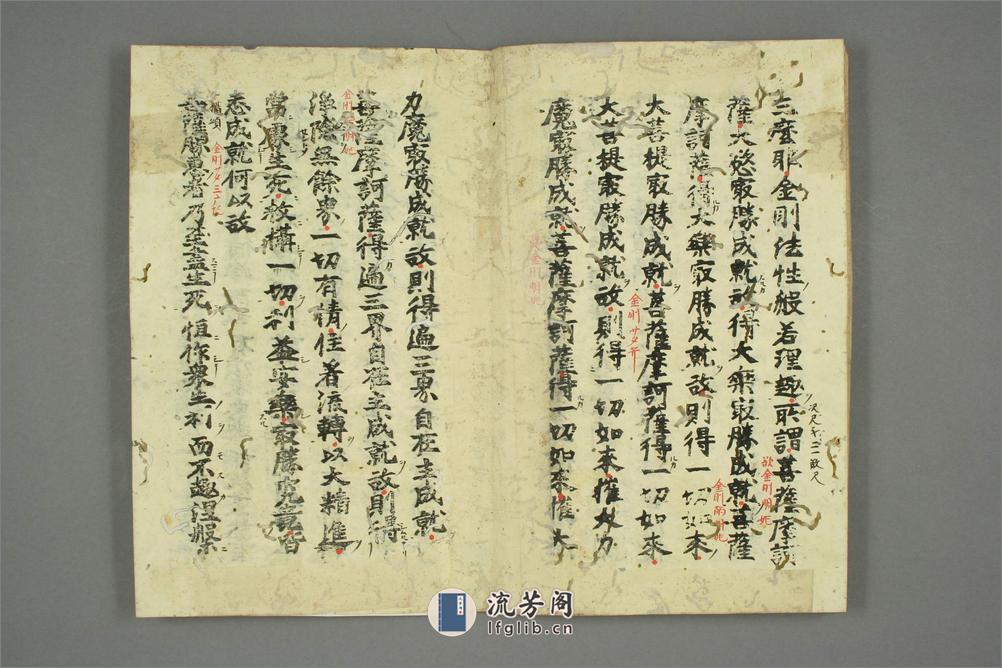 三摩耶金剛法性般若理趣所謂菩薩摩訶
薩大慾㝡勝成就故得大樂㝡勝成就菩薩
摩訶薩得大樂㝡勝成就故則得一切如来
大菩提㝡勝成就菩薩摩訶薩得一切如来
大菩提㝡勝成就故則得一切如来摧大力
魔㝡勝成就菩薩摩訶薩得一切如来摧大
力魔㝡勝成就故則得遍三界自在主成就
菩薩摩訶薩得遍三界自在主成就故則得
淨除無餘界一切有情住著流轉以大精進
常處生死救攝一切利益安樂㝡勝究竟皆
悉成就何以故
菩薩勝慧者乃至盡生死恒作衆生利而不趣涅槃
欲金剛明妃
流芳阁
lfglib.cn